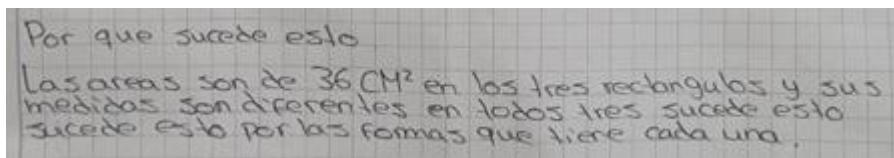 Por que sucede esto
Las areas son de 36 CM² en los tres rectangulos y sus
medidas son diferentes en todos tres sucede esto
sucede esto por las formas que tiene cada una.